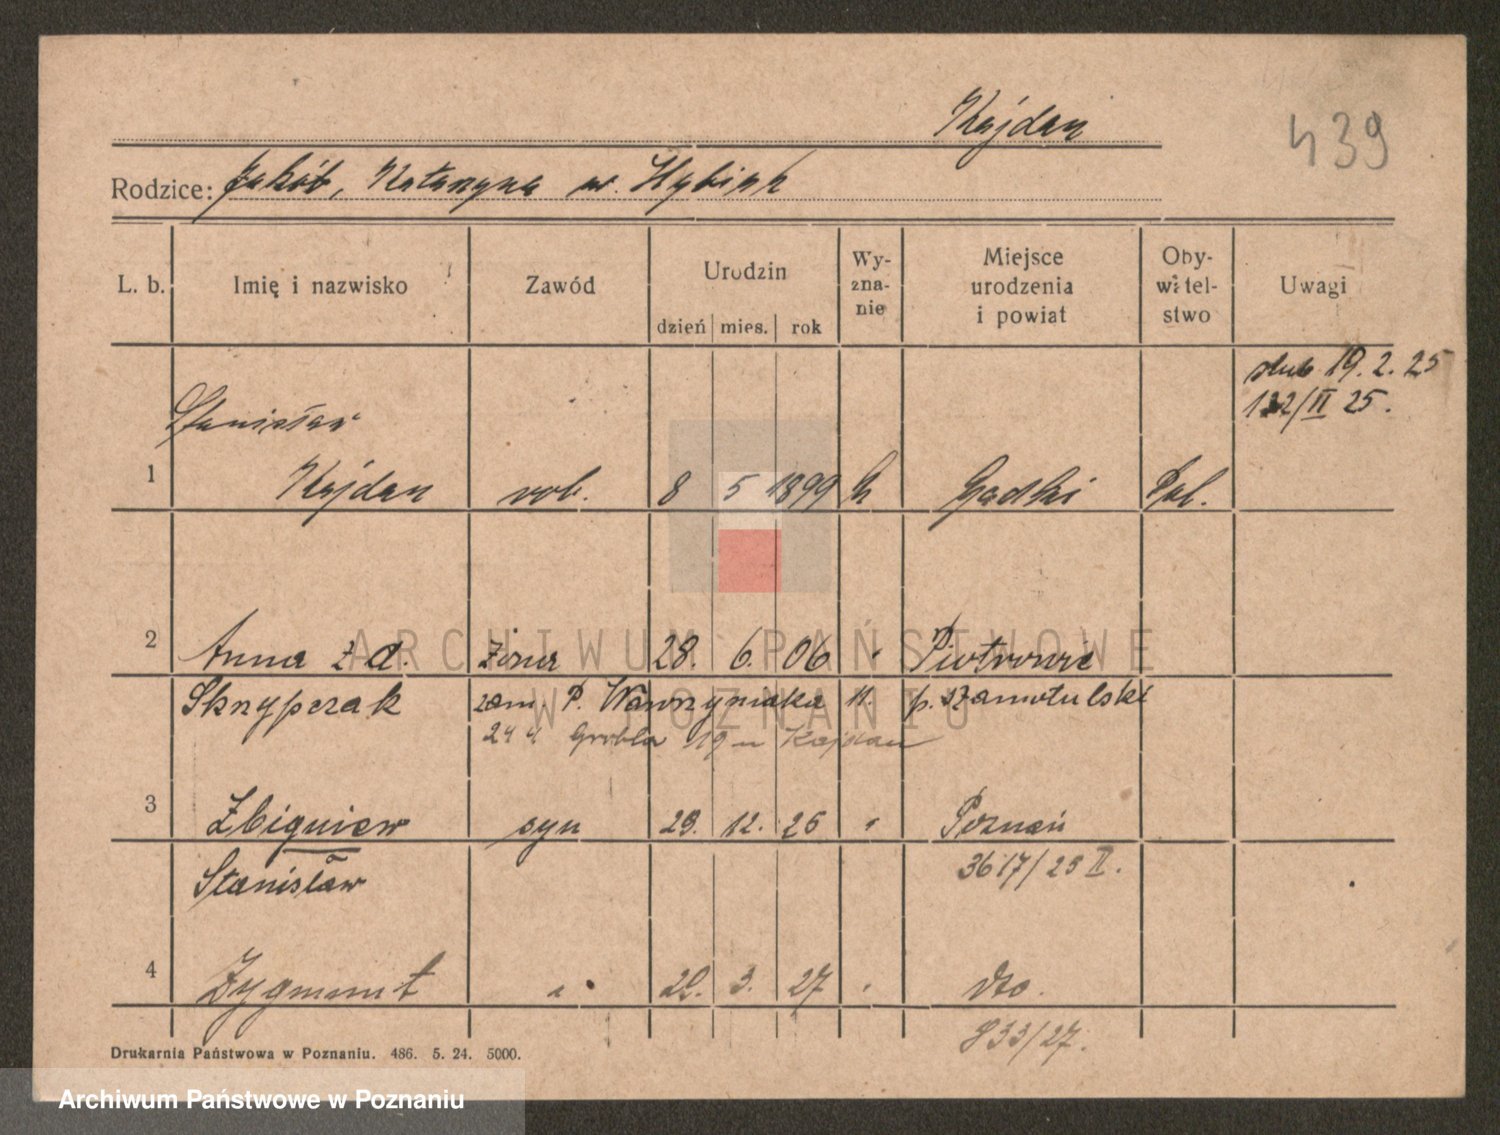 Kajdan
439
Rodzice: Jakób, Katarzyna
L. b. Imię i nazwisko Zawód Urodzin dzień mies. rok Wy-zna-nie Miejsce urodzenia i powiat Oby-watel-stwo Uwagi
ślub 19. 2. 25
122/II 25.
Stanisław
1 Kajdan rob. 8 5 1899 Gądki Pol.
2 Anna z d. żona 28. 6. 06 Piotrowie
Skrzypczak zam. P. Wawrzyniaka 11. p. szamotulski
24 4 Grobla 19 u Kajdan
3 Zbigniew syn 29. 12. 25 " Poznań
Stanisław 3617/25 II.
4 Zygmunt " 22. 3. 27 " dto.
833/27.
Drukarnia Państwowa w Poznaniu. 486. 5. 24. 5000.
ARCHIWUM PAŃSTWOWE
W POZNANIU
Archiwum Państwowe w Poznaniu